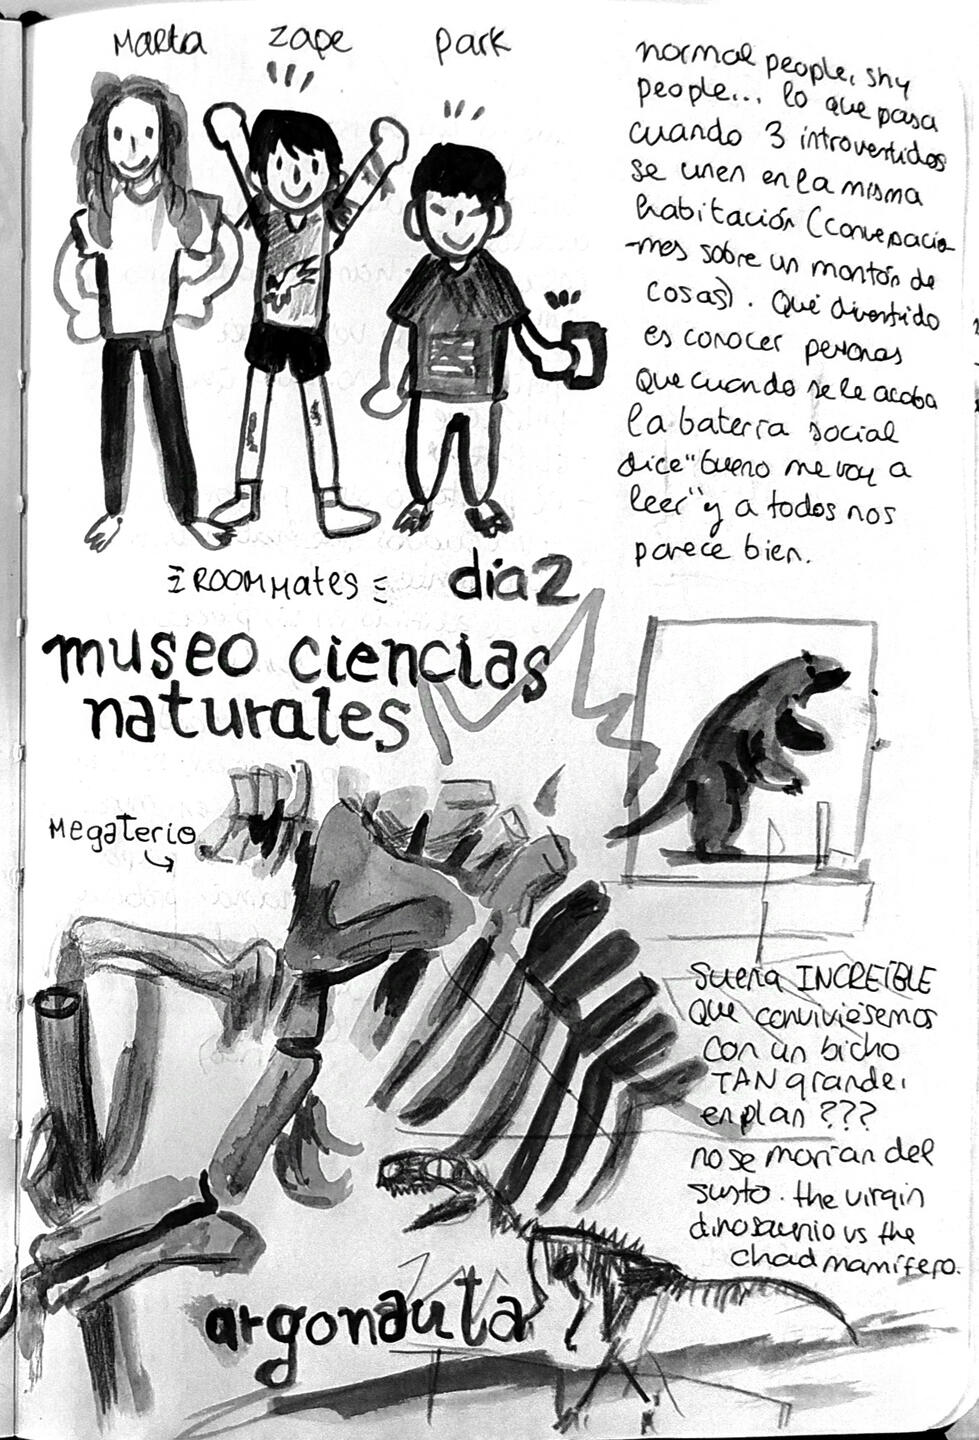 Marta
zape
park
normal people, shy
people... lo que pasa
cuando 3 introvertidos
se unen en la misma
habitación (conversacio-
-nes sobre un montón de
cosas). Qué divertido
es conocer personas
que cuando se le acaba
la batería social
dice "bueno me voy a
leer" y a todos nos
parece bien.
ROOMMATES
día 2
museo ciencias
naturales
Megaterio
suena INCREÍBLE
que conviviésemos
con un bicho
TAN grande,
en plan ???
no se morían del
susto. the virgin
dinosaurio vs the
chad mamífero.
argonauta